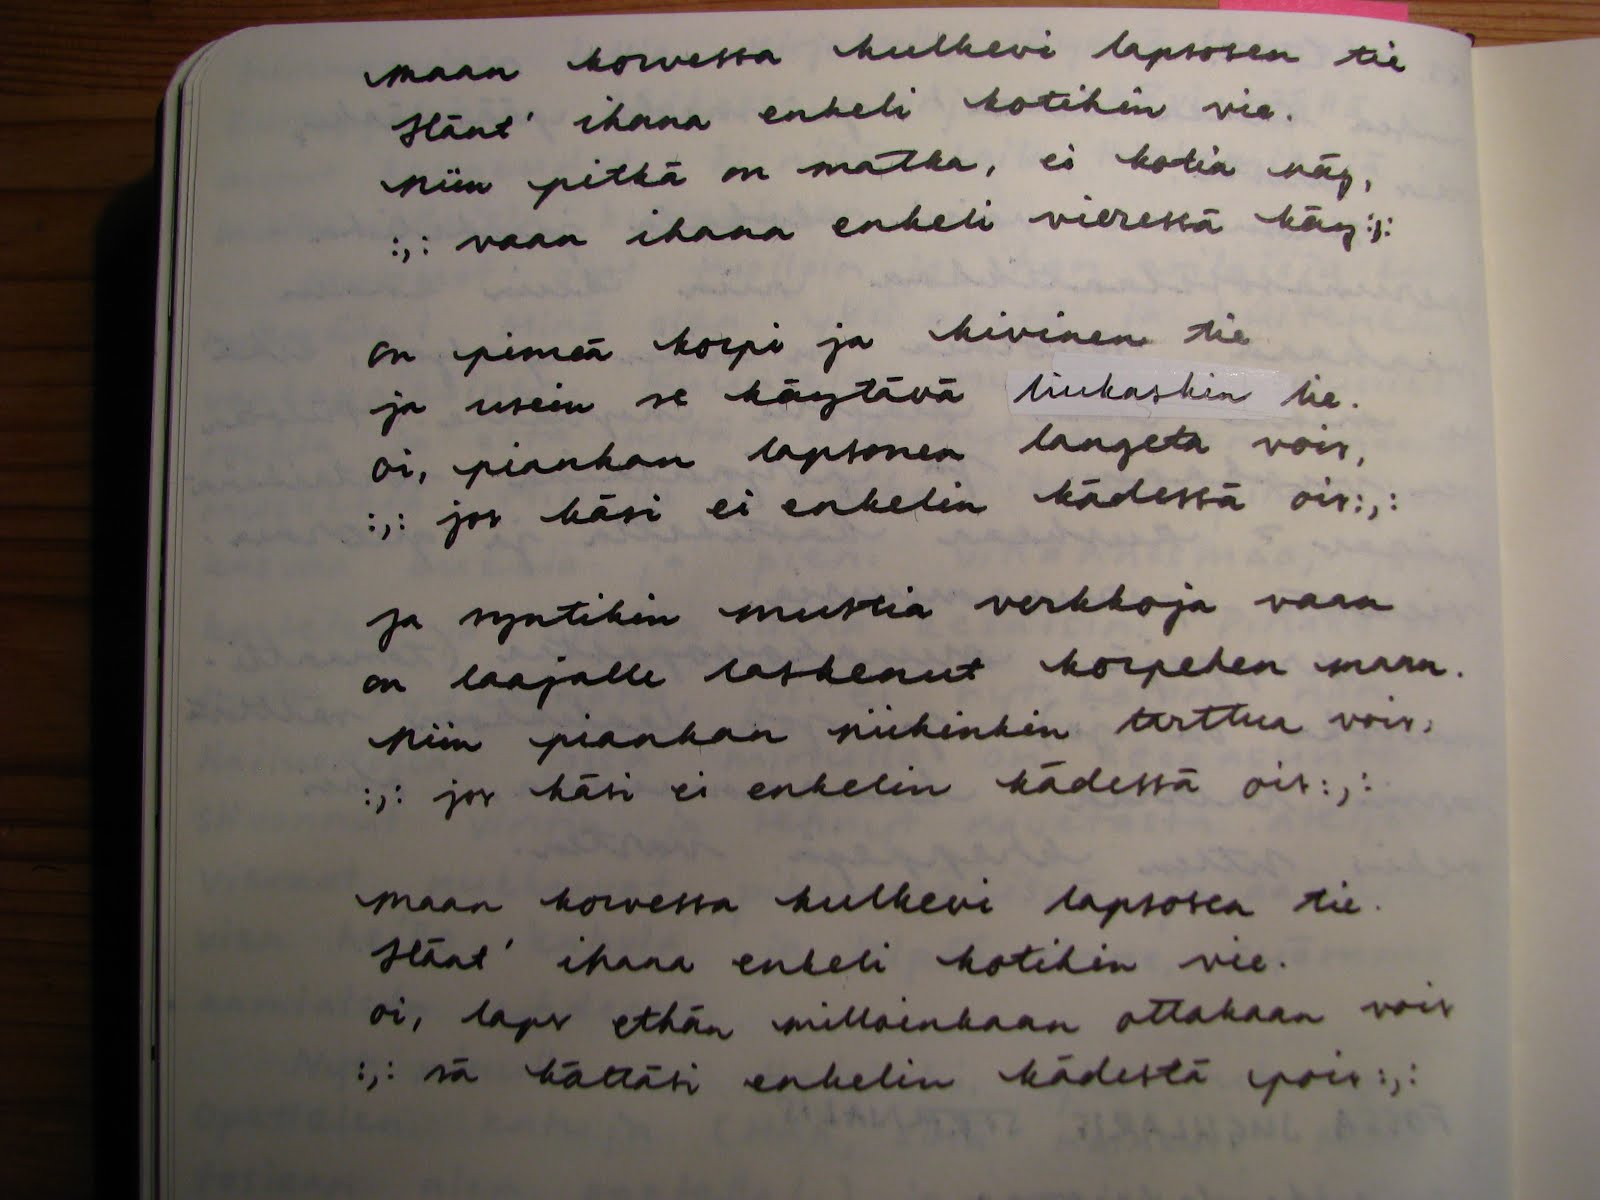 maan korvessa kulkevi lapsosen tie
Hänt' ihana enkeli kotihin vie.
Niin pitkä on matka, ei kotia näy,
:,: vaan ihana enkeli vieressä käy:,:
on pimeä korpi ja kivinen tie
ja usein se käytävä liukaskin lie.
oi, piankan lapsonen langeta vois,
:,: jos käsi ei enkelin kädessä ois:,:
ja syntikin mustia verkkoja vaan
on laajalle laskenut korpehen maan.
Niin piankan niihinkin tarttua vois,
:,: jos käsi ei enkelin kädessä ois:,:
maan korvessa kulkevi lapsosen tie.
Hänt' ihana enkeli kotihin vie.
oi, laps ethän milloinkaan ottakaan vois
:,: sä kättäsi enkelin kädestä pois:,:
FOSSA JUGULARIS